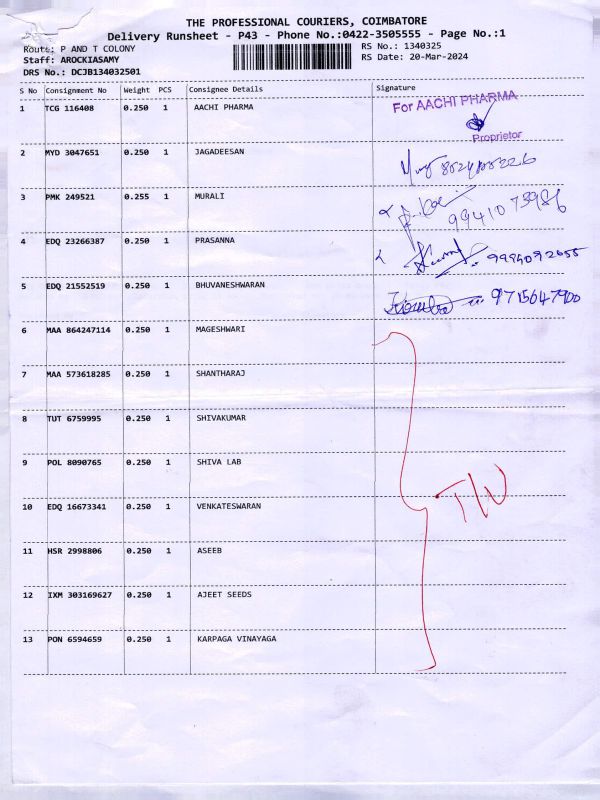 THE PROFESSIONAL COURIERS, COIMBATORE
Delivery Runsheet - P43 - Phone No.:0422-3505555 - Page No.:1
Route: P AND T COLONY RS No.: 1340325
Staff: AROCKIASAMY RS Date: 20-Mar-2024
DRS No.: DCJB134032501
S No Consignment No Weight PCS Consignee Details Signature
1 TCG 116408 0.250 1 AACHI PHARMA For AACHI PHARMA
Proprietor
2 MYD 3047651 0.250 1 JAGADEESAN
3 PMK 249521 0.255 1 MURALI 9941073986
4 EDQ 23266387 0.250 1 PRASANNA 9994092655
5 EDQ 21552519 0.250 1 BHUVANESHWARAN 9715647900
6 MAA 864247114 0.250 1 MAGESHWARI
7 MAA 573618285 0.250 1 SHANTHARAJ
8 TUT 6759995 0.250 1 SHIVAKUMAR
9 POL 8090765 0.250 1 SHIVA LAB
10 EDQ 16673341 0.250 1 VENKATESWARAN
11 HSR 2998806 0.250 1 ASEEB
12 IXM 303169627 0.250 1 AJEET SEEDS
13 PON 6594659 0.250 1 KARPAGA VINAYAGA